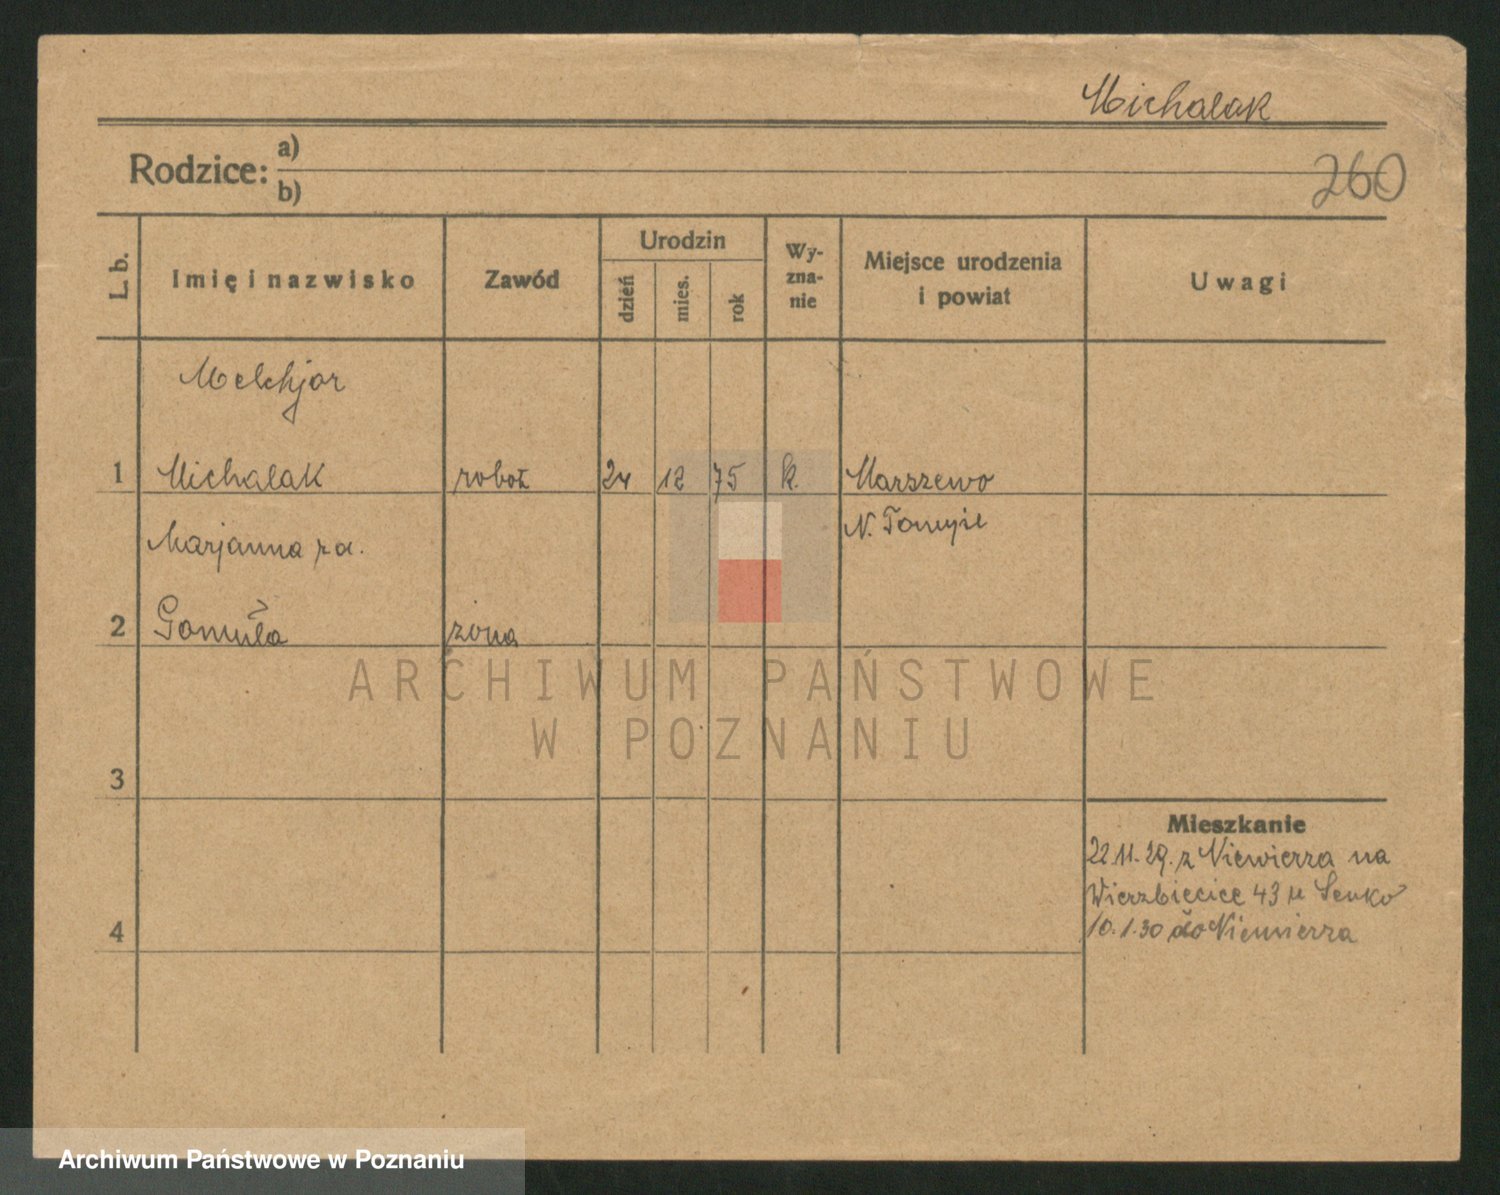 Michalak
Rodzice: a)
b)
260
L. b.
Imię i nazwisko
Zawód
Urodzin
dzień
mies.
rok
Wy-
zna-
nie
Miejsce urodzenia
i powiat
Uwagi
Melchjor
1 Michalak robot 24 12 75 k. Marszewo
N. Tomyśl
Marjanna za.
2 Gomuła żona
3
4
Mieszkanie
22.11.29. z Niewierza na
Wierzbięcice 43 u Senko
10.1.30 do Niewierza
ARCHIWUM PAŃSTWOWE
W POZNANIU
Archiwum Państwowe w Poznaniu